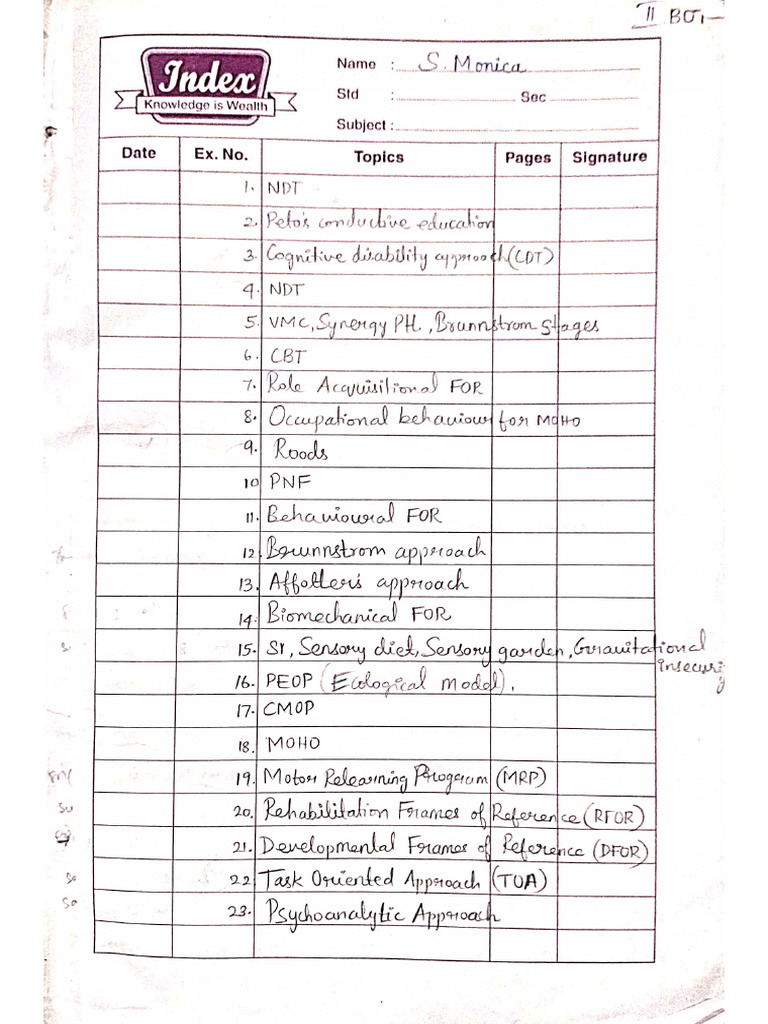 II BOT
Index
Knowledge is Wealth
Name : S. Monica
Std : Sec
Subject :
Date Ex. No. Topics Pages Signature
1. NDT
2. Peto's conductive education
3. Cognitive disability approach (CDT)
4. NDT
5. VMC, Synergy PH., Brunnstrom stages
6. CBT
7. Role Acquisitional FOR
8. Occupational behaviour for MOHO
9. Roods
10 PNF
11. Behavioural FOR
12. Brunnstrom approach
13. Affolter's approach
14. Biomechanical FOR
15. SI, Sensory diet, Sensory garden, Gravitational insecurity
16. PEOP (Ecological model).
17. CMOP
18. MOHO
19. Motor Relearning Program (MRP)
20. Rehabilitation Frames of Reference (RFOR)
21. Developmental Frames of Reference (DFOR)
22 Task Oriented Approach (TOA)
23. Psychoanalytic Approach